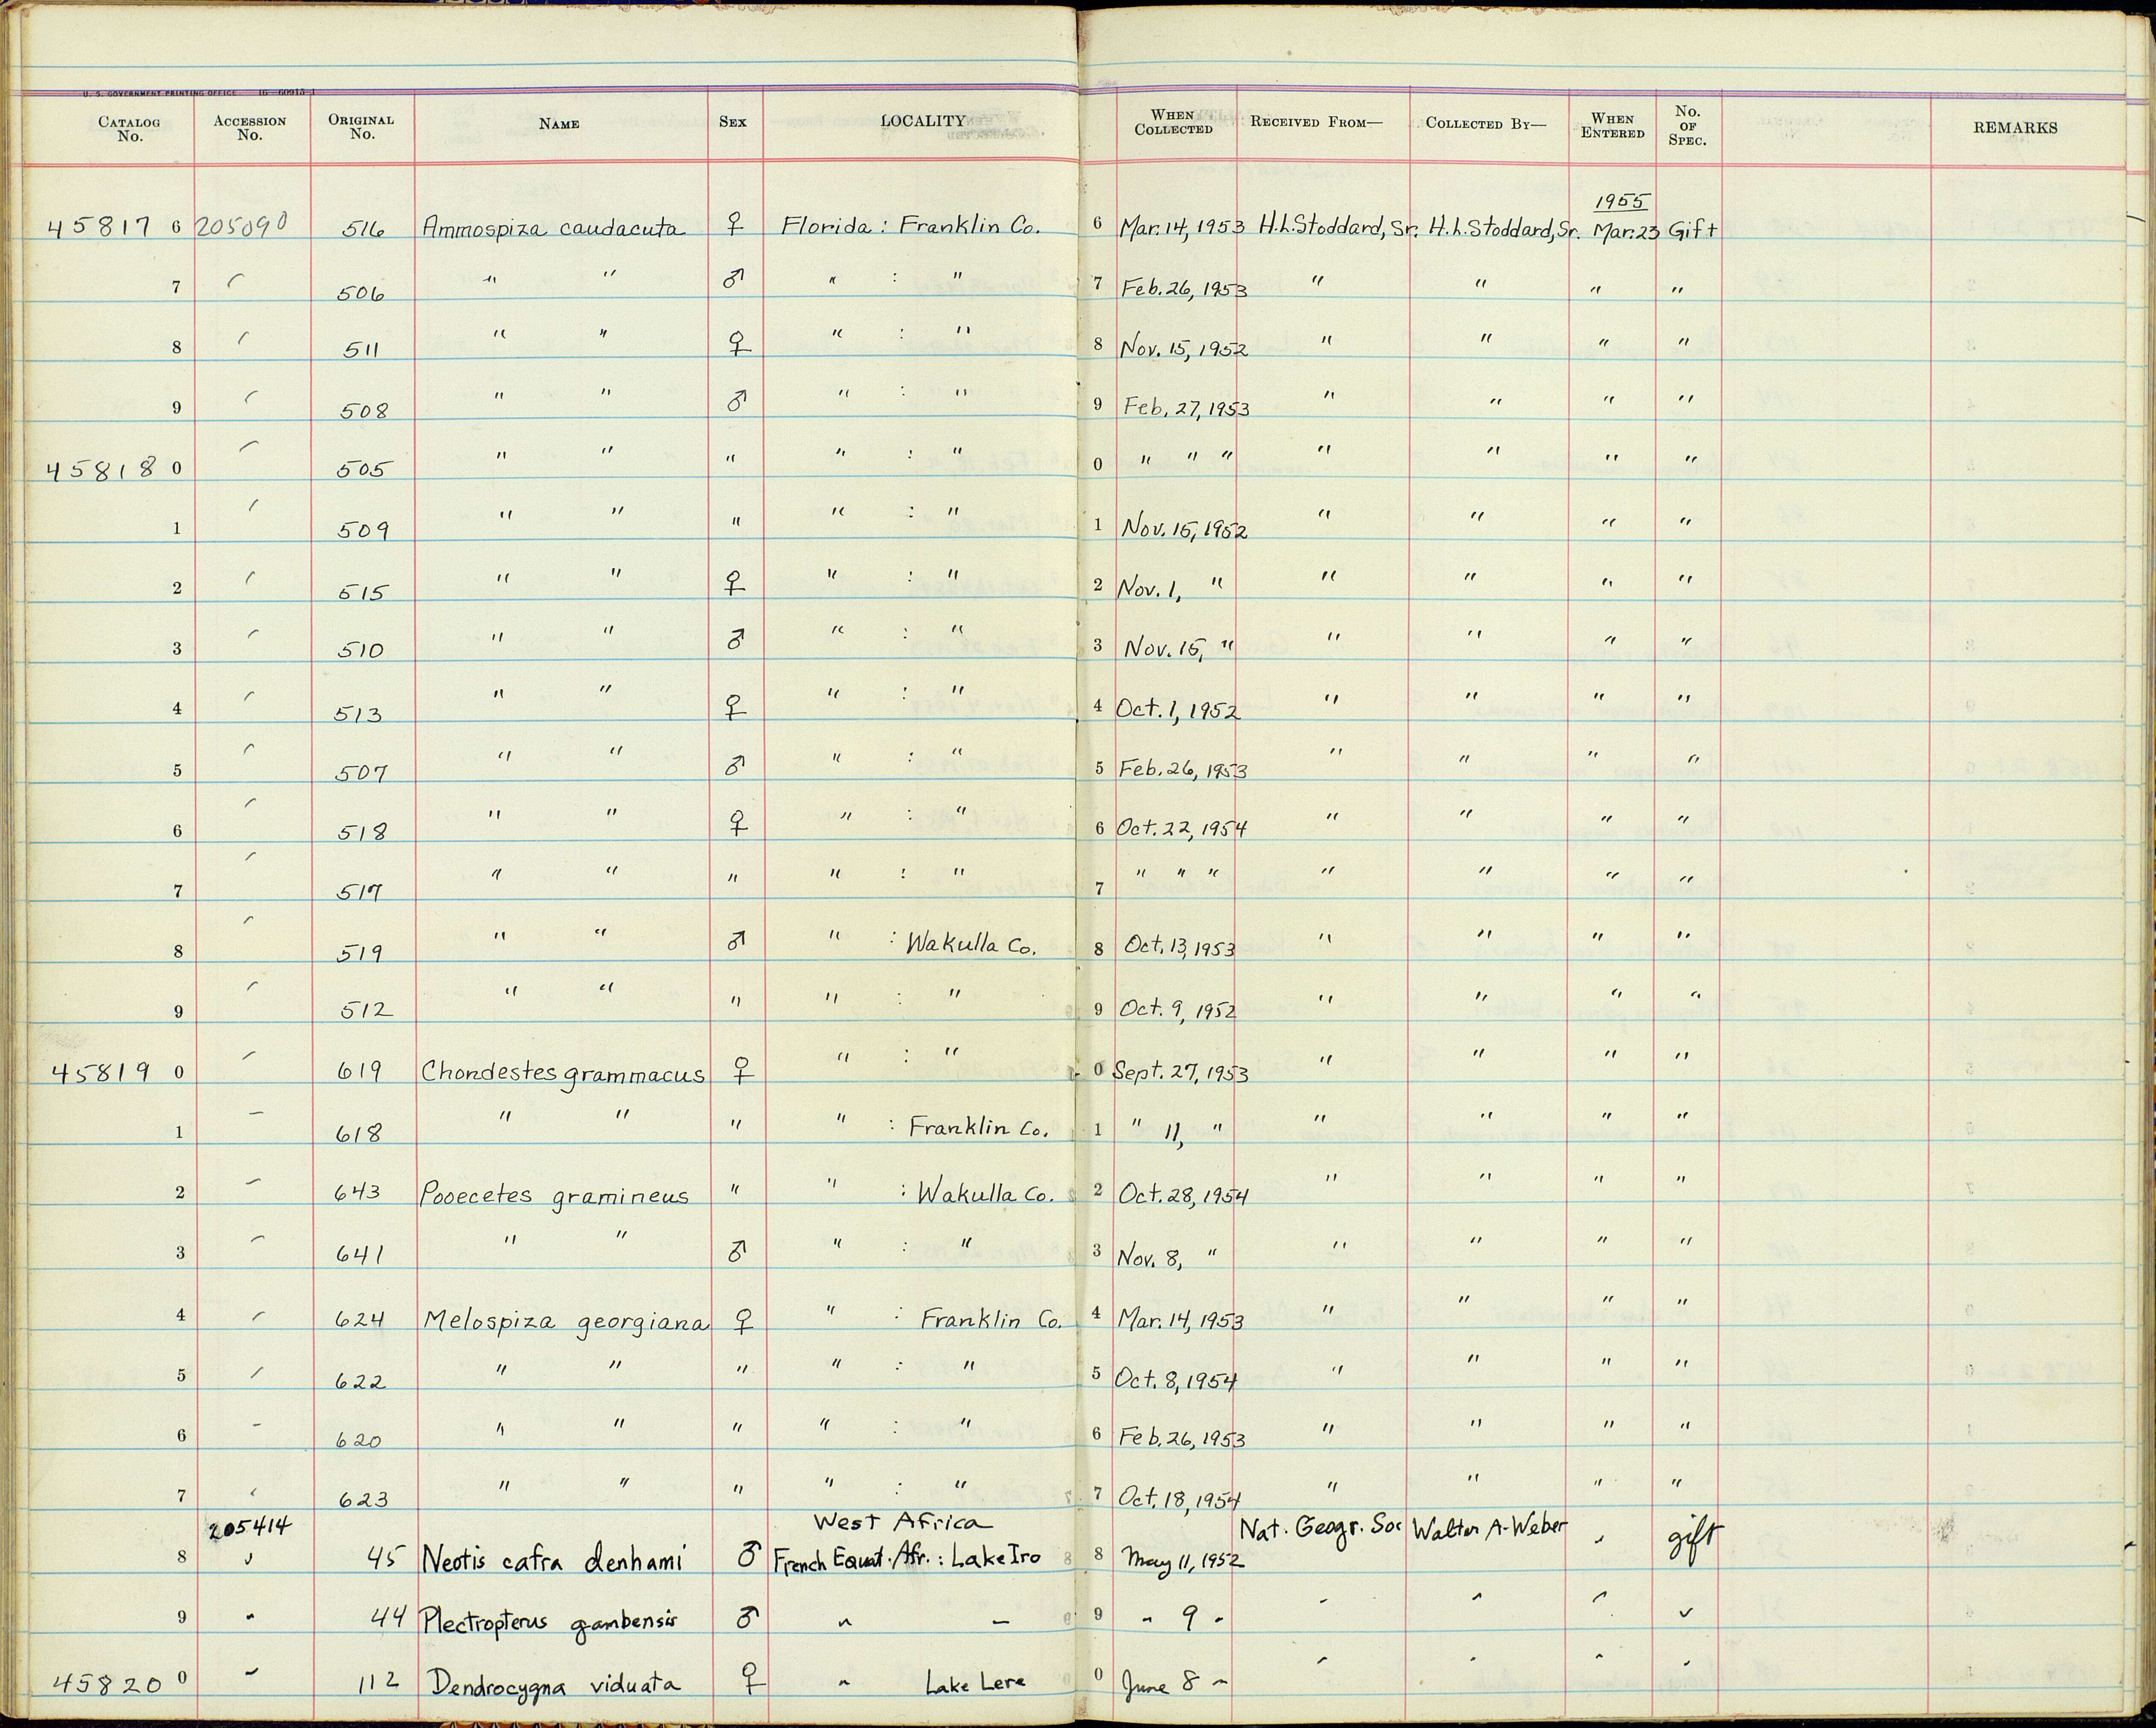 U. S. GOVERNMENT PRINTING OFFICE 16—60915-1
CATALOG No. ACCESSION No. ORIGINAL No. NAME SEX LOCALITY WHEN COLLECTED RECEIVED FROM— COLLECTED BY— WHEN ENTERED No. OF SPEC. REMARKS
1955
45817 6 205090 516 Ammospiza caudacuta ♀ Florida : Franklin Co. 6 Mar. 14, 1953 H.L. Stoddard, Sr. H.L. Stoddard, Sr. Mar. 23 Gift
7 " 506 " " ♂ " : " 7 Feb. 26, 1953 " " " "
8 " 511 " " ♀ " : " 8 Nov. 15, 1952 " " " "
9 " 508 " " ♂ " : " 9 Feb. 27, 1953 " " " "
45818 0 " 505 " " " " : " 0 " " " " " " "
1 " 509 " " " " : " 1 Nov. 15, 1952 " " " "
2 " 515 " " ♀ " : " 2 Nov. 1, " " " " "
3 " 510 " " ♂ " : " 3 Nov. 15, " " " " "
4 " 513 " " ♀ " : " 4 Oct. 1, 1952 " " " "
5 " 507 " " ♂ " : " 5 Feb. 26, 1953 " " " "
6 " 518 " " ♀ " : " 6 Oct. 22, 1954 " " " "
7 " 517 " " " " : " 7 " " " " " " "
8 " 519 " " ♂ " : Wakulla Co. 8 Oct. 13, 1953 " " " "
9 " 512 " " " " : " 9 Oct. 9, 1952 " " " "
45819 0 " 619 Chondestes grammacus ♀ " : " 0 Sept. 27, 1953 " " " "
1 " 618 " " " " : Franklin Co. 1 " 11, " " " " "
2 " 643 Pooecetes gramineus " " : Wakulla Co. 2 Oct. 28, 1954 " " " "
3 " 641 " " ♂ " : " 3 Nov. 8, " " " " "
4 " 624 Melospiza georgiana ♀ " : Franklin Co. 4 Mar. 14, 1953 " " " "
5 " 622 " " " " : " 5 Oct. 8, 1954 " " " "
6 " 620 " " " " : " 6 Feb. 26, 1953 " " " "
7 " 623 " " " " : " 7 Oct. 18, 1954 " " " "
205414 West Africa Nat. Geogr. Soc Walter A. Weber
8 " 45 Neotis cafra denhami ♂ French Equat. Afr. : Lake Iro 8 May 11, 1952 " gift
9 " 44 Plectropterus gambensis ♂ " — 9 " 9 " " " " "
45820 0 " 112 Dendrocygna viduata ♀ " Lake Lere 0 June 8 " " " " "